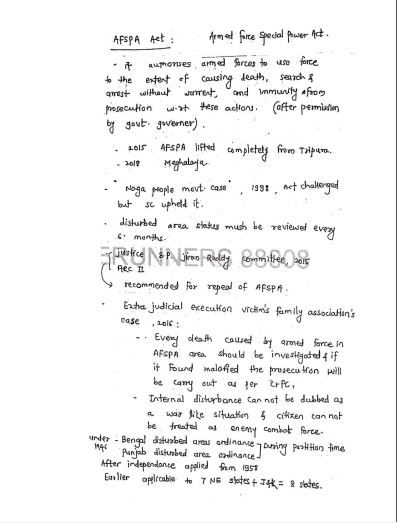 AFSPA Act : Armed force Special Power Act.
- It authorises armed forces to use force
to the extent of causing death, search &
arrest without warrent, and immunity from
prosecution w.r.t these actions. (after permission
by govt. governer).
- 2015 AFSPA lifted completely from Tripura.
- 2018 Meghalaya.
- "Naga people movt. case", 1998, act challenged
but SC upheld it.
- disturbed area status mush be reviewed every
6 months.
RUNNERS 88808
- Justice B.P. Jivan Reddy committee, 2015
ARC II
recommended for repeal of AFSPA.
- Extra judicial execution victim's family association's
case, 2016 :
- Every death caused by armed force in
AFSPA area should be investigated & if
it found malafied the prosecution will
be carry out as per CrPC,
- Internal disturbance can not be dubbed as
a war like situation & citizen can not
be treated as enemy combat force.
under - Bengal disturbed areas ordinance
1946 Punjab disturbed area ordinance ] During partition time
After independence applied from 1958
Earlier applicable to 7 NE states + J&K = 8 states.